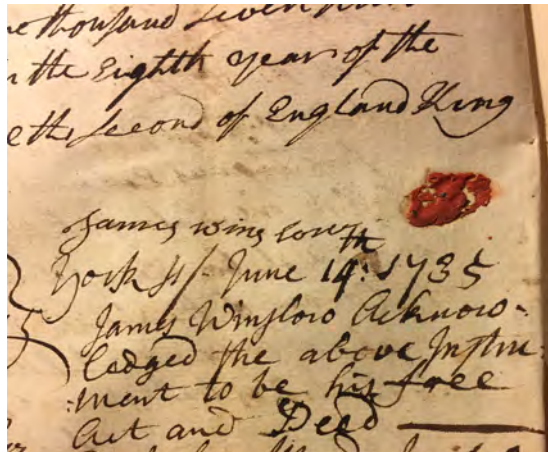 thousand Seven
n the Eighth year of the
e the Second of England King
James winslow
York ss/ June 14th: 1735
James Winslow Acknow-
ledged the above Instru-
ment to be his free
Act and Deed